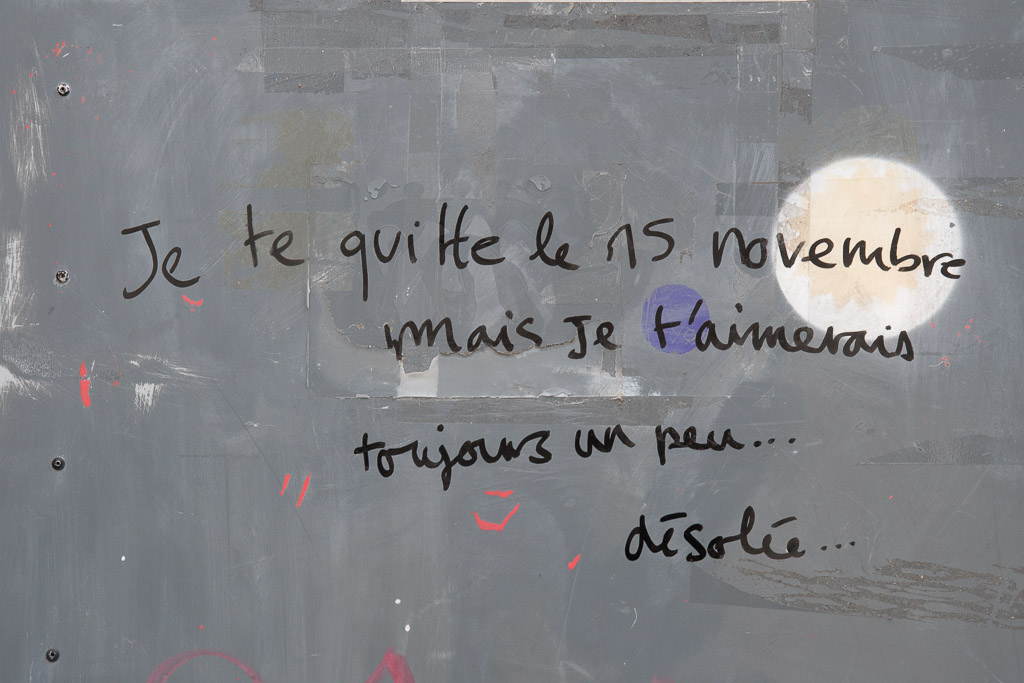 Je te quitte le 15 novembre
mais je t'aimerais
toujours un peu...
désolée...